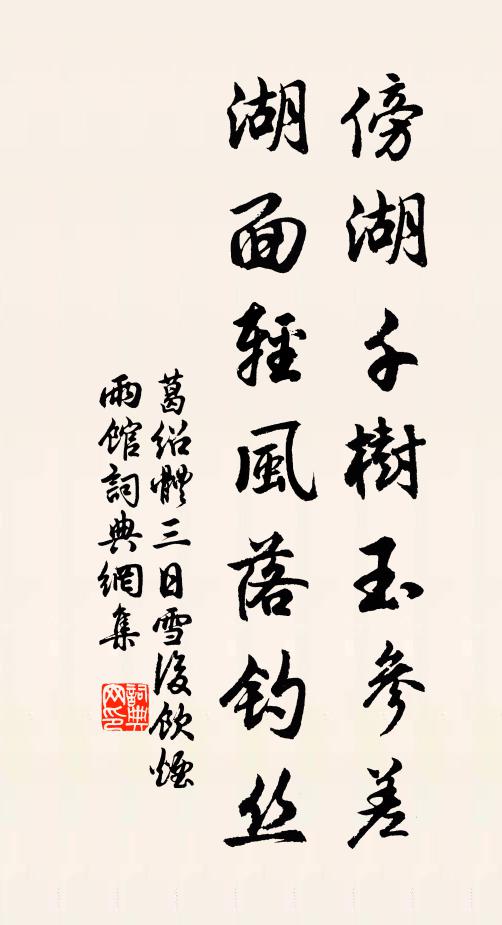 傍湖千樹玉參差
湖面輕風落釣丝
葛绍體三日雪後飲煙
雨館詞典網集
詞典网印